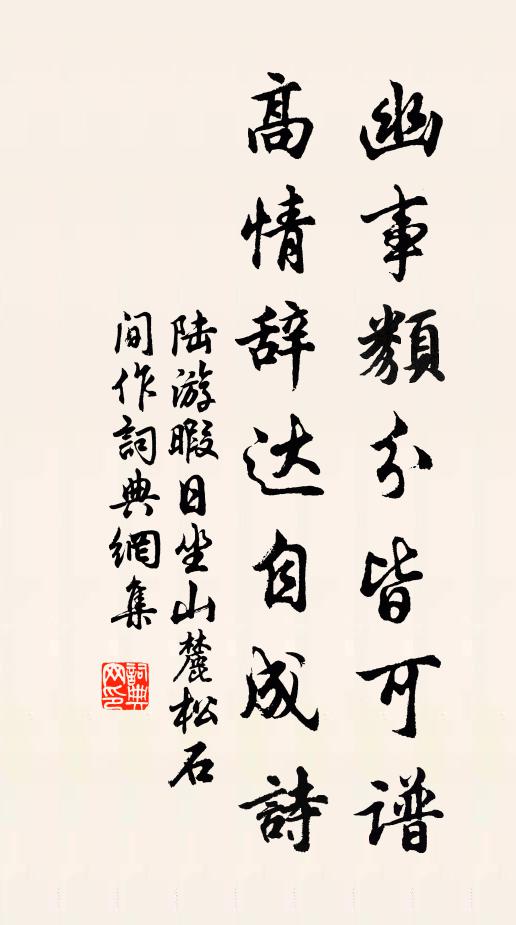 幽事類分皆可谱
高情辞达自成詩
陆游暇日坐山麓松石
间作詞典網集
詞典网印